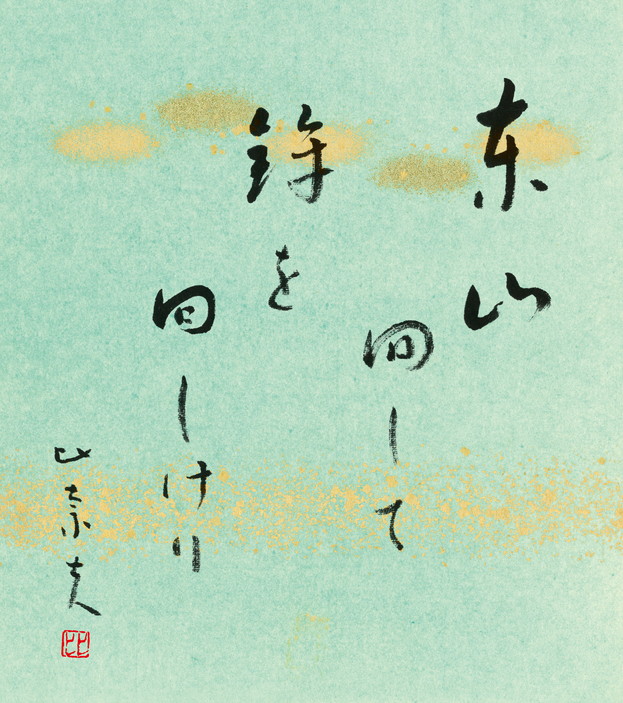 東山
回して
鉾を
回しけり
比奈夫
比